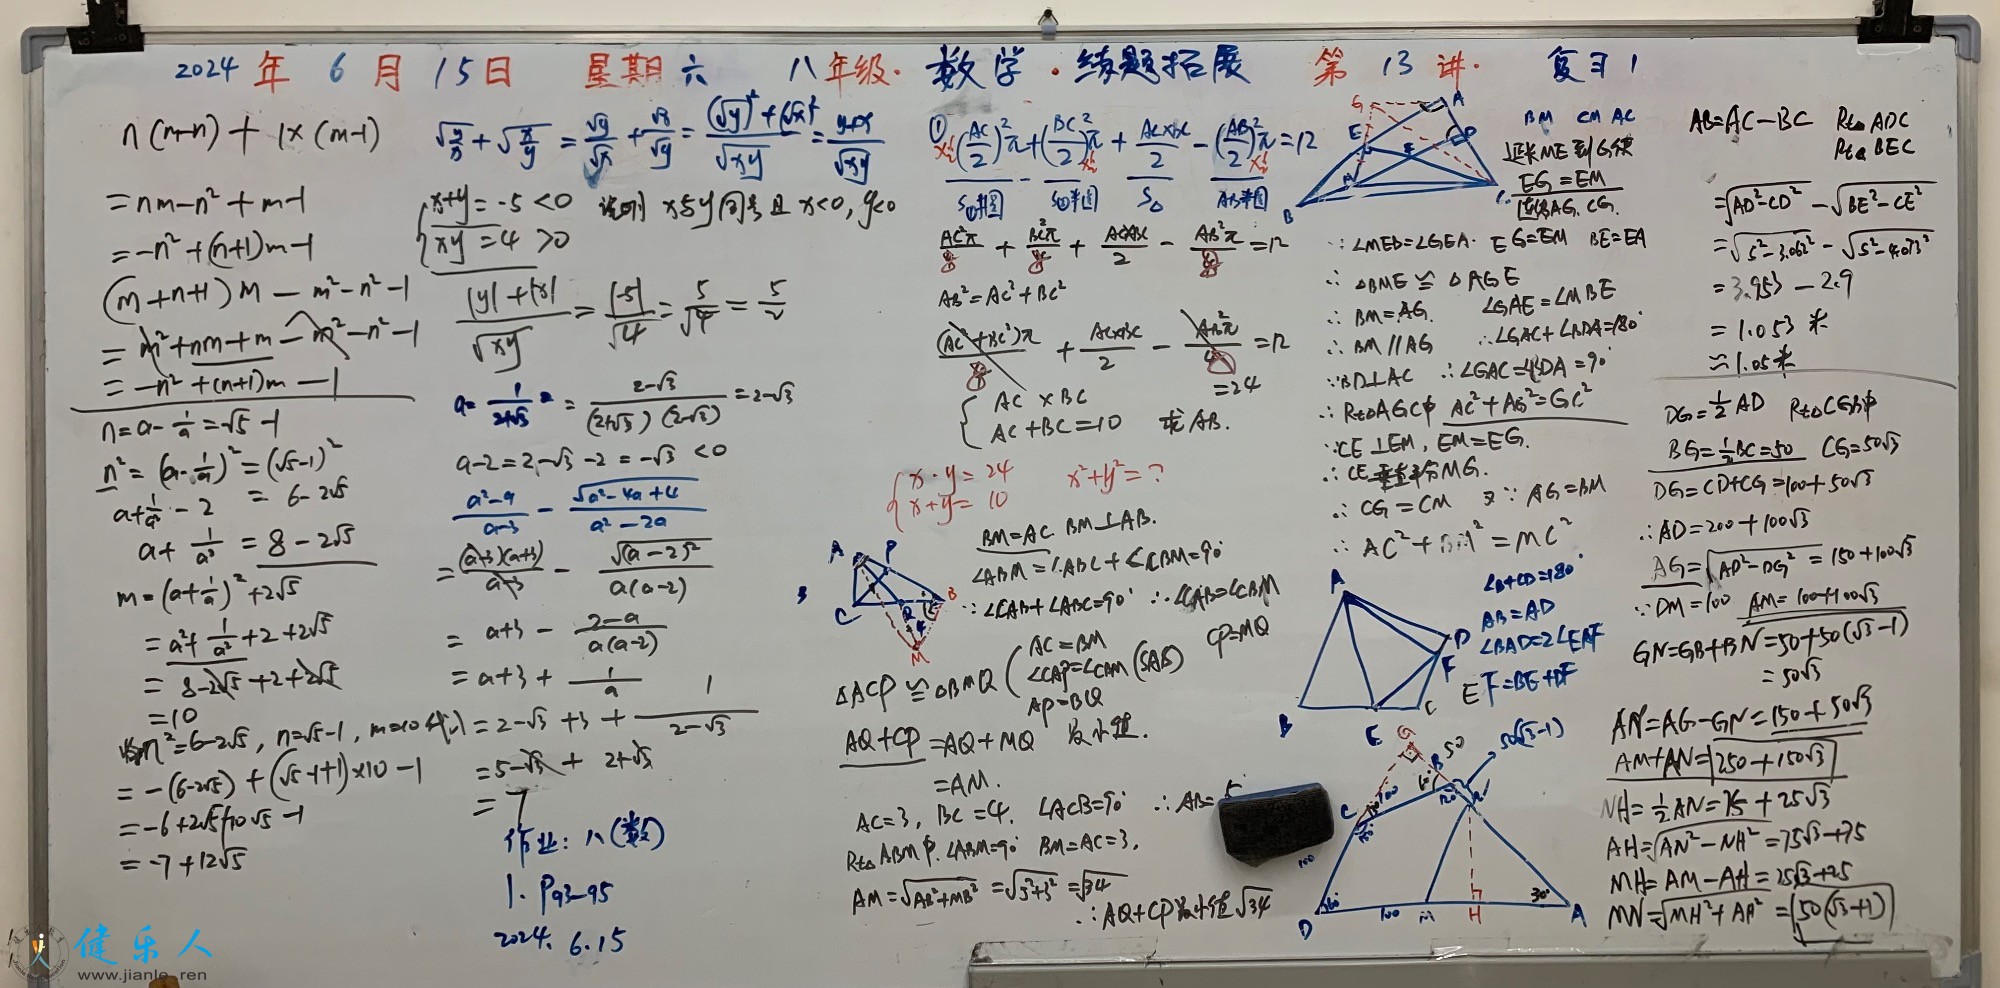 2024年6月15日 星期六 八年级·数学·练题拓展 第13讲· 复习1
n(m-n)+1×(m-1)
=nm-n²+m-1
=-n²+(n+1)m-1
(m+n+1)m-m²-n²-1
=m²+nm+m-m²-n²-1
=-n²+(n+1)m-1
n=a-1/a=√5-1
n²=(a-1/a)²=(√5-1)²
=6-2√5
=8-2√5
=10
=-(6-2√5)+(√5-1+1)×10-1
=-6+2√5+10√5-1
=-7+12√5
√(y/x)+√(x/y)=√y/√x+√x/√y=((√y)²+(√x)²)/√xy=(y+x)/√xy
x+y=-5<0 说明x与y同号且x<0,y<0
xy=4>0
(|y|+|x|)/√xy=|-5|/√4=5/√4=5/2
a=1/(2+√3)==(2-√3)/((2+√3)(2-√3))=2-√3
a-2=2-√3-2=-√3<0
(a²-9)/(a-3)-√(a²-4a+4)/(a²-2a)
=(a-3)(a+3)/(a-3)-√(a-2)²/(a(a-2))
=a+3-(2-a)/(a(a-2))
=a+3+1/a
=2-√3+3+1/(2-√3)
=5-√3+2+√3
=7
作业:八(数)
1. P93-95
2024.6.15
① ×½(AC/2)²π+(BC/2)²π×½+AC×BC/2-(AB/2)²π×½=12
AC²π/8+BC²π/8+AC×BC/2-AB²π/8=12
AB²=AC²+BC²
(AC²+BC²)π/8+AC×BC/2-AB²π/8=12
AC×BC=24
AC+BC=10 求AB.
x·y=24 x²+y²=?
x+y=10
A P B C Q M
BM=AC BM⊥AB.
∠ABM=∠ABC+∠CBM=90°
∵∠CAB+∠ABC=90° ∴∠CAB=∠CBM
AC=BM
∠CAP=∠CBM (SAS) CP=MQ
AP=BQ
△ACP≌△BMQ
AQ+CP=AQ+MQ 最小值.
=AM.
AC=3, BC=4, ∠ACB=90° ∴AB=5
Rt△ABM中.∠ABM=90° BM=AC=3,
AM=√(AB²+MB²)=√(5²+3²)=√34
∴AQ+CP最小值√34
G A E D F M B C
BM CM AC
延长ME到G使
EG=EM
连接AG.CG.
∵∠MEB=∠GEA. EG=EM BE=EA
∴△BME≌△AGE
∴BM=AG. ∠GAE=∠MBE
∴BM∥AG ∴∠GAC+∠BDA=180°
∵BD⊥AC ∴∠GAC=∠BDA=90°
∴Rt△AGC中 AC²+AG²=GC²
∵CE⊥EM, EM=EG.
∴CE垂直平分MG.
∴CG=CM 又∵AG=BM
∴AC²+BM²=MC²
A B C D E F
∠B+∠D=180°
AB=AD
∠BAD=2∠EAF
EF=BE+DF
G 50 B 50(√3-1) C 100 N D 60° 100 M H 30° A
AB=AC-BC Rt△ADC
Rt△BEC
=√(AD²-CD²)-√(BE²-CE²)
=√(5²-3.062²)-√(5²-4.073²)
=3.953-2.9
=1.053米
≈1.05米
DG=½AD Rt△CGB中
BG=½BC=50 CG=50√3
DG=CD+CG=100+50√3
∴AD=200+100√3
AG=√(AD²-DG²)=150+100√3
∵DM=100 AM=100+100√3
GN=GB+BN=50+50(√3-1)
=50√3
AN=AG-GN=150+50√3
AM+AN=250+150√3
NH=½AN=75+25√3
AH=√(AN²-NH²)=75√3+75
MH=AM-AH=25√3+25
MN=√(MH²+AH²)=50(√3+1)
健乐人
www.jianle.ren